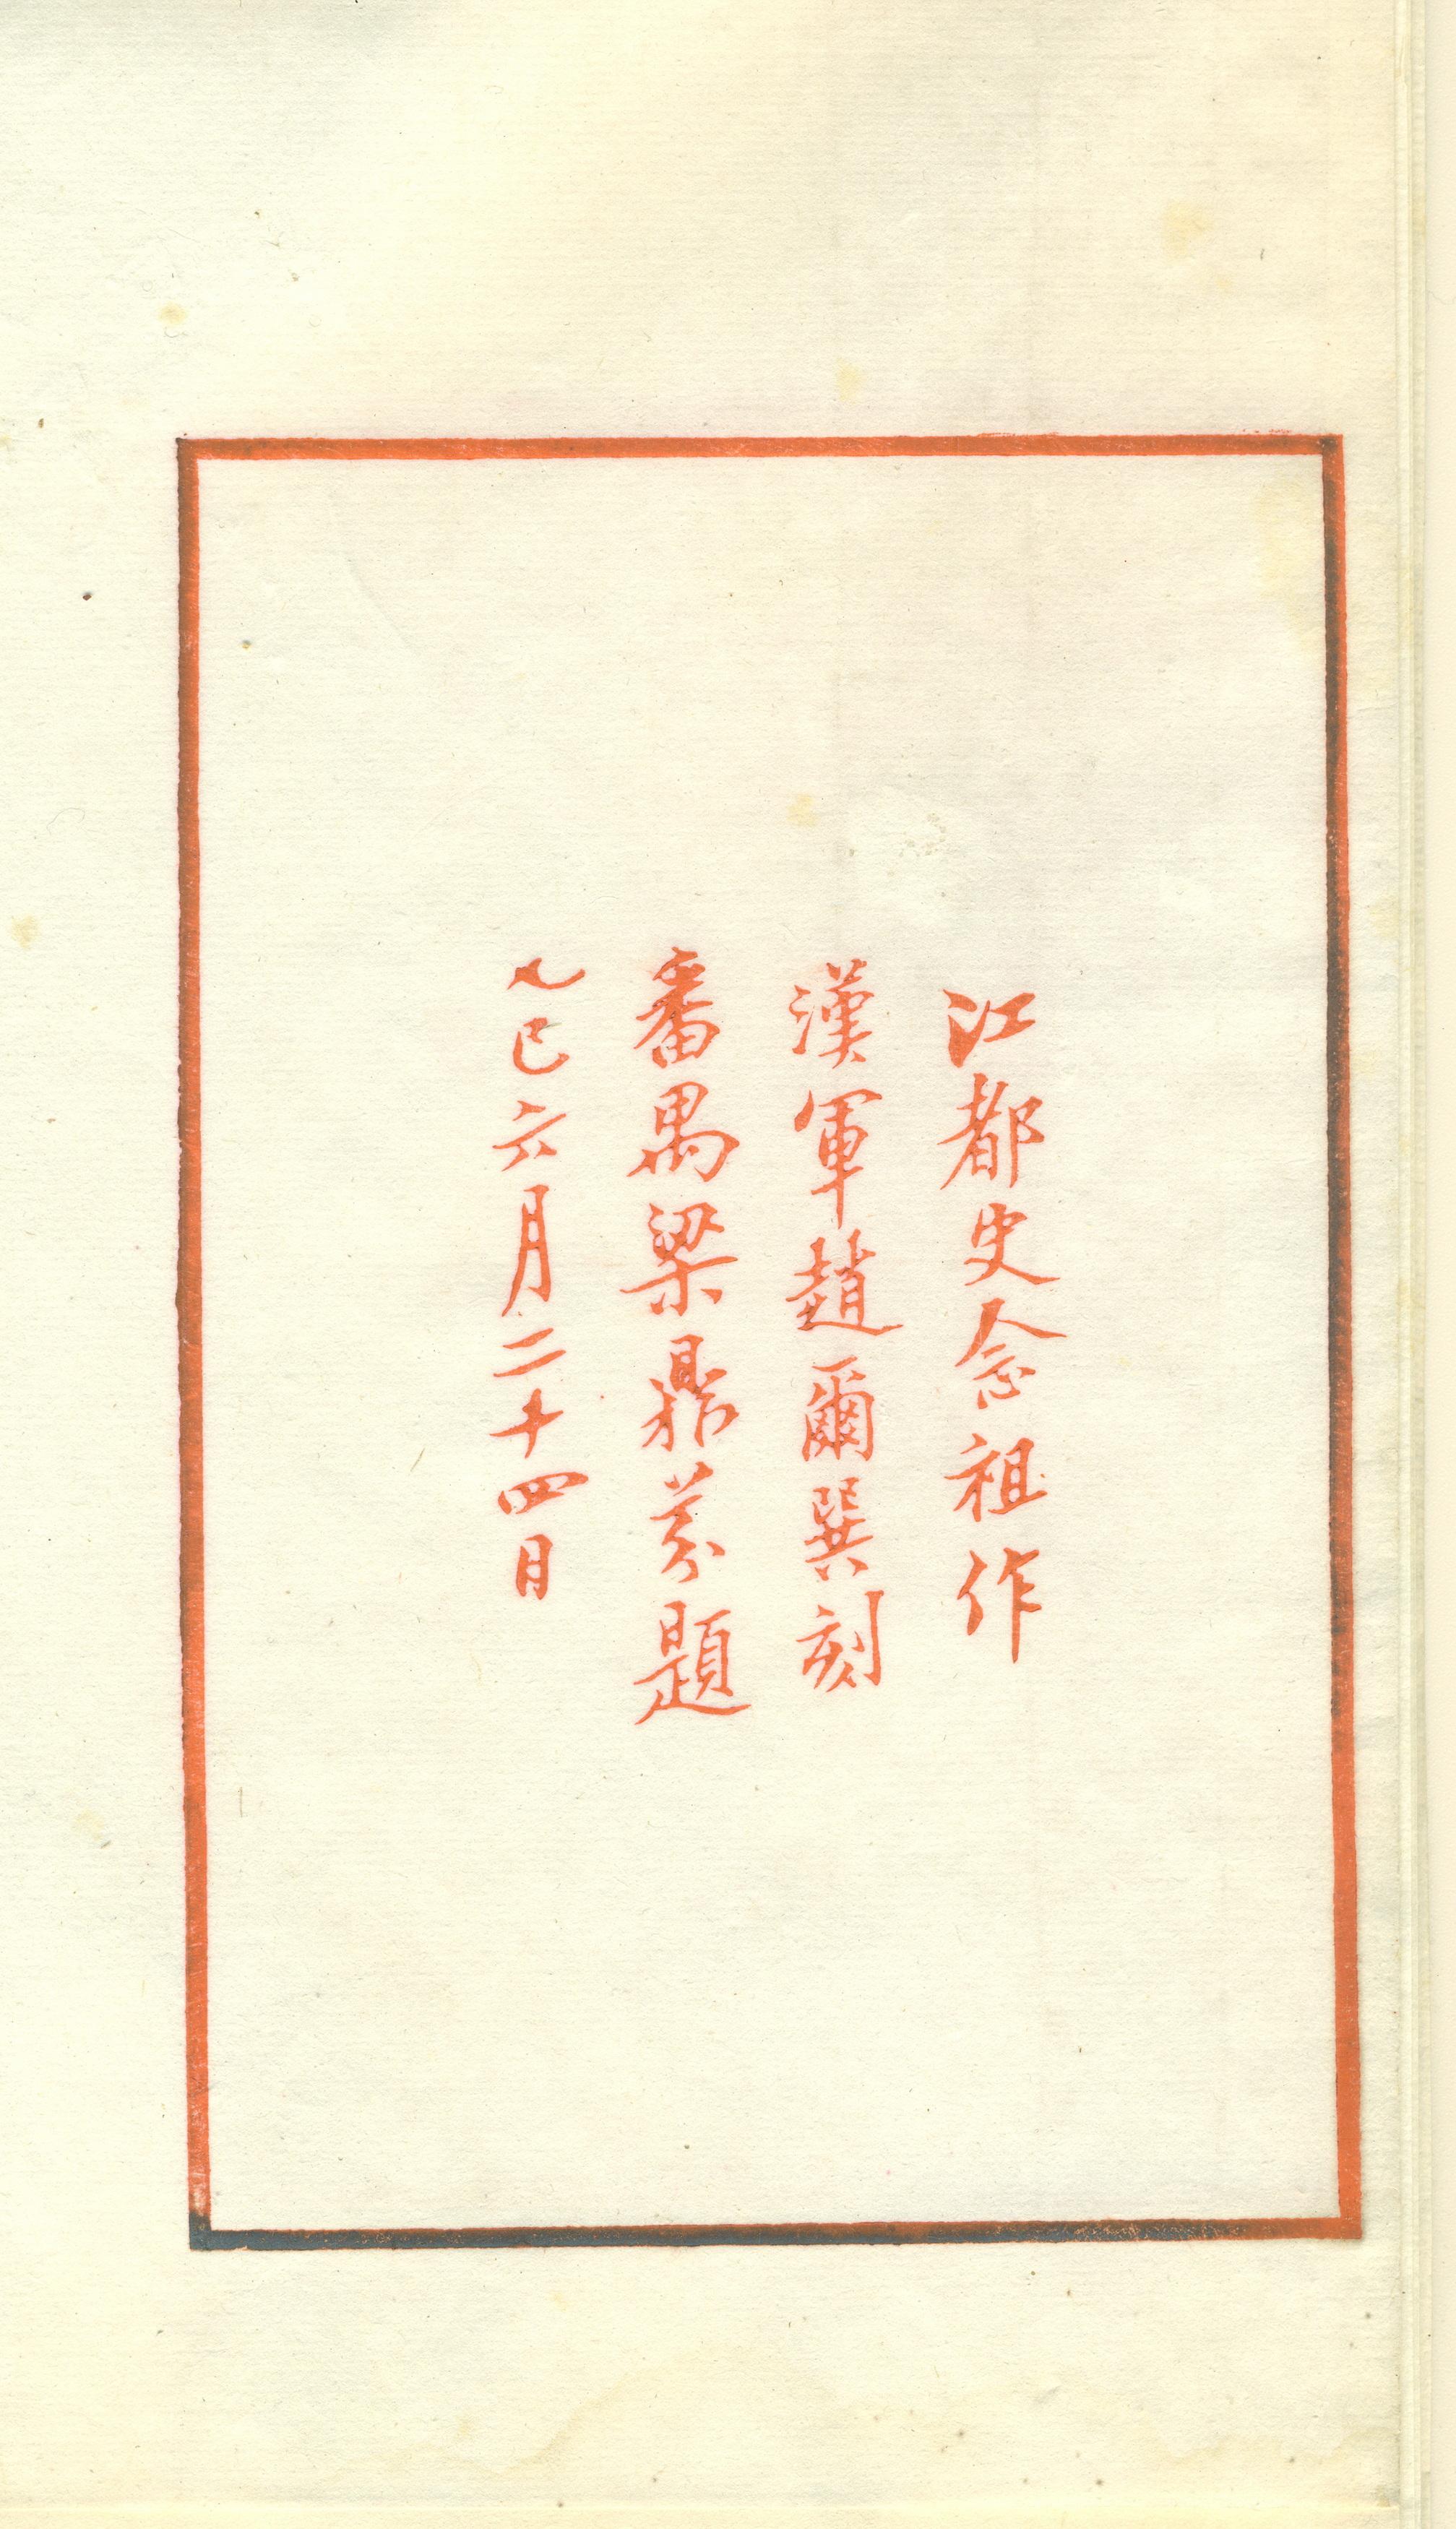 江都史念祖作
漢軍趙爾巽刻
番禺梁鼎芬題
乙巳六月二十四日